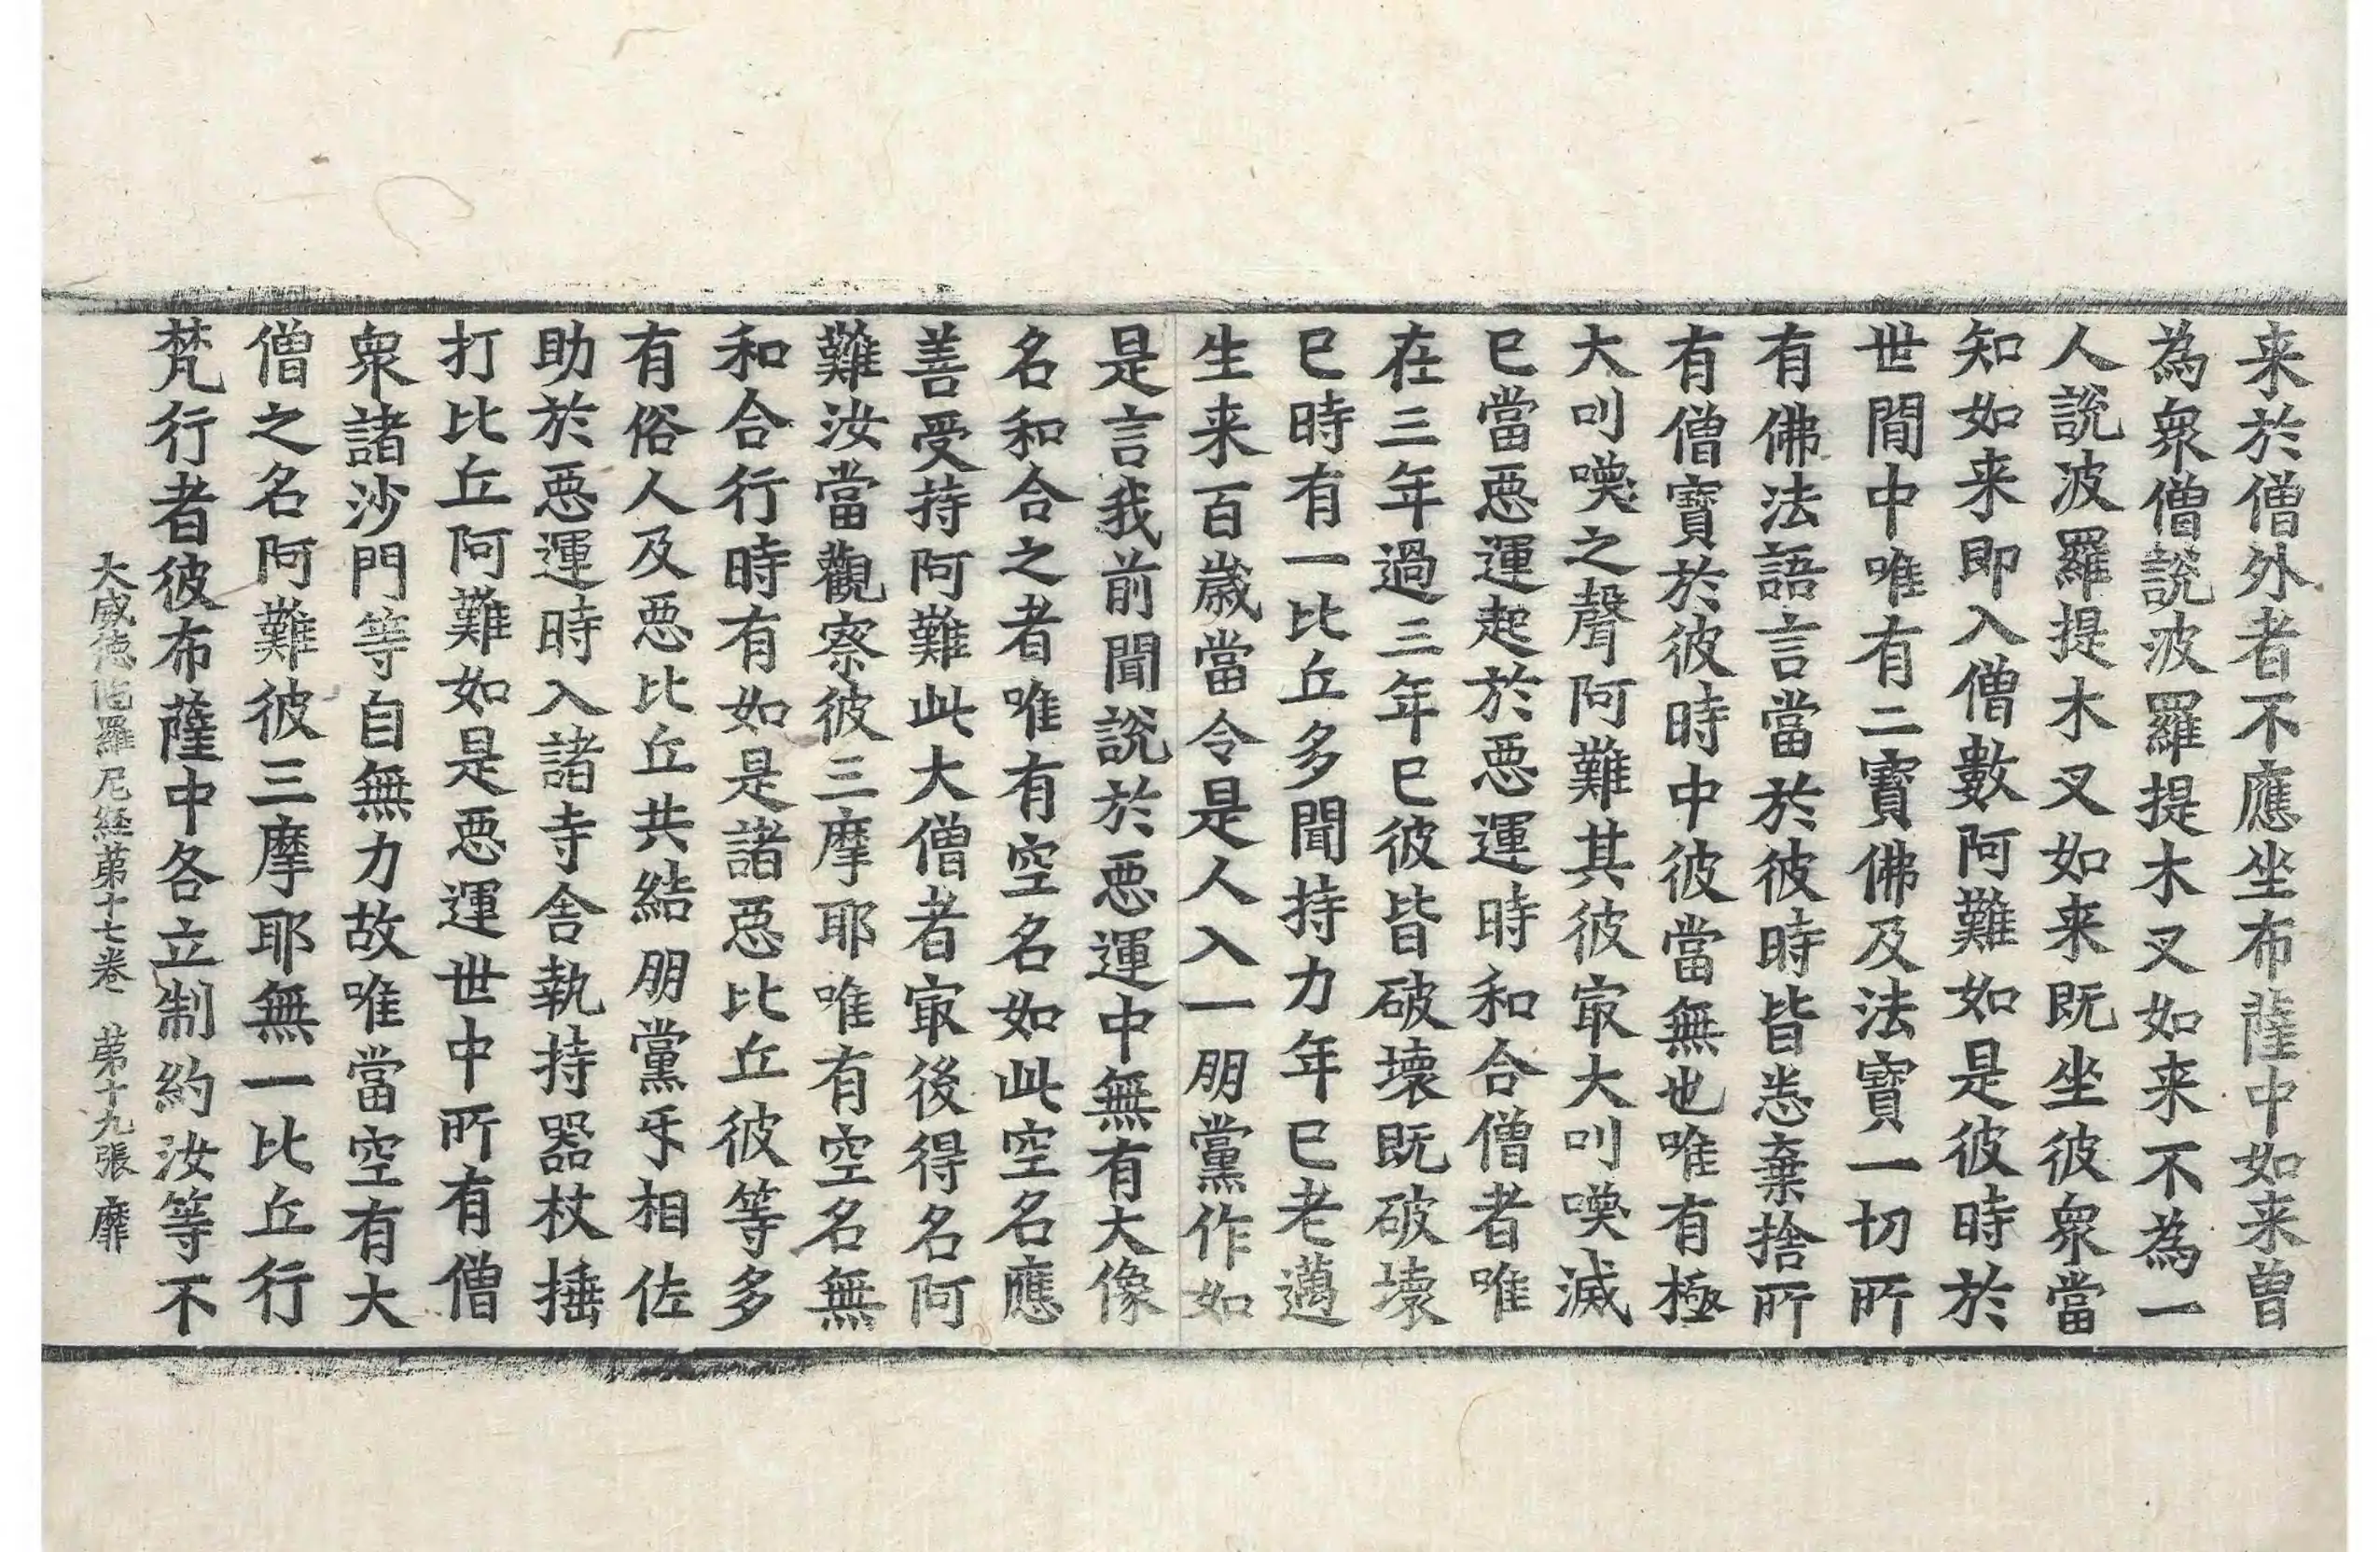 来於僧外者不應坐布薩中如来曽
為衆僧說波羅提木叉如来不為一
人說波羅提木叉如来既坐彼衆當
知如来即入僧數阿難如是彼時於
世間中唯有二寶佛及法寶一切所
有佛法語言當於彼時皆悉棄捨所
有僧寶於彼時中彼當無也唯有極
大叫喚之聲阿難其彼㝡大叫喚滅
已當惡運起於惡運時和合僧者唯
在三年過三年已彼皆破壞既破壞
已時有一比丘多聞持力年已老邁
生来百歲當令是人入一朋黨作如
是言我前聞說於惡運中無有大像
名和合之者唯有空名如此空名應
善受持阿難此大僧者㝡後得名阿
難汝當觀察彼三摩耶唯有空名無
和合行時有如是諸惡比丘彼等多
有俗人及惡比丘共結朋黨㸦相佐
助於惡運時入諸寺舍執持器杖捶
打比丘阿難如是惡運世中所有僧
衆諸沙門等自無力故唯當空有大
僧之名阿難彼三摩耶無一比丘行
梵行者彼布薩中各立制約汝等不
大威德陁羅尼経第十七卷 第十九張 靡